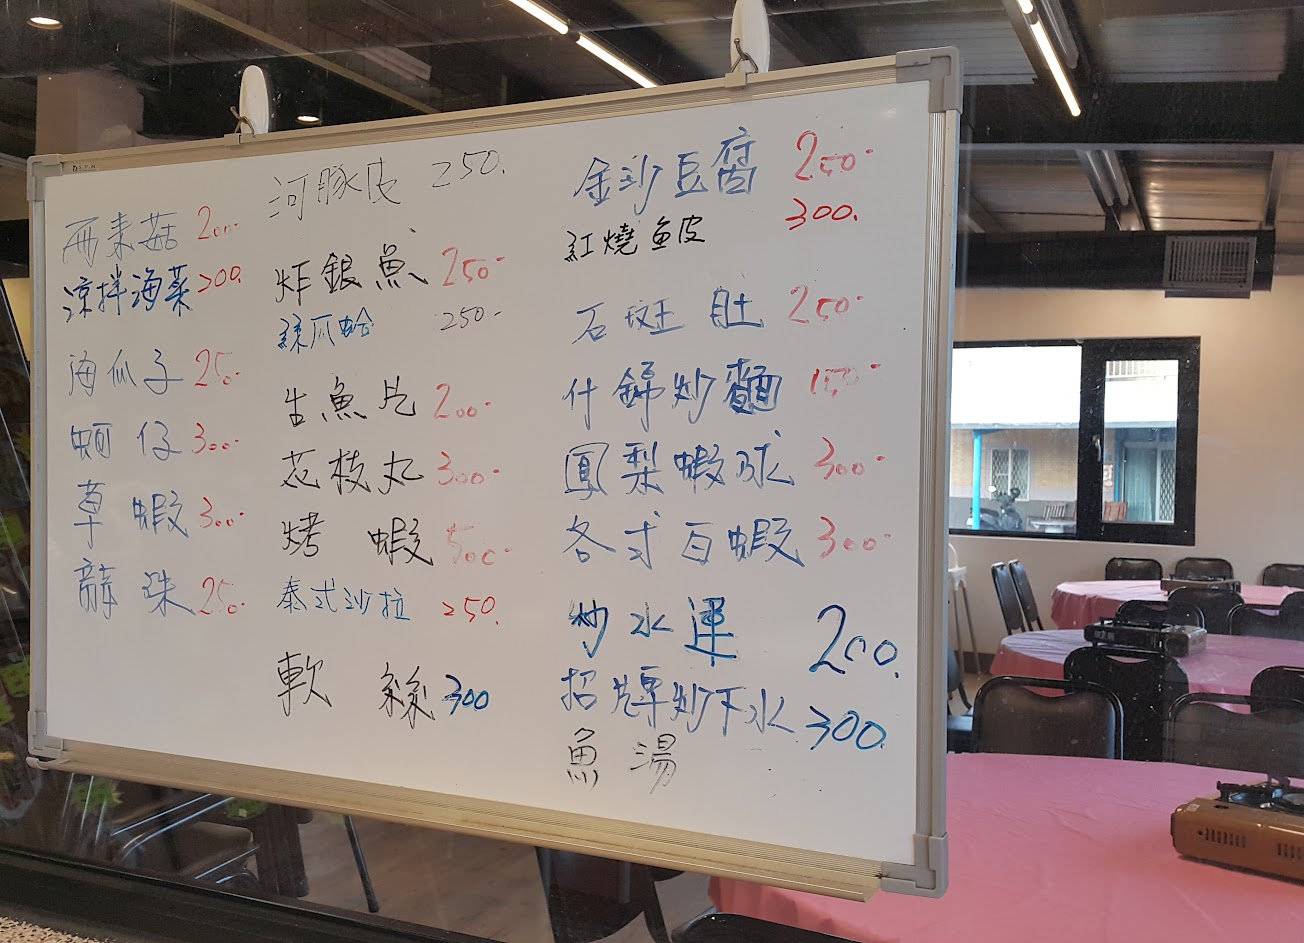 雨來菇 200.
涼拌海菜 200.
海瓜子 250.
蚵仔 300.
草蝦 300.
龍珠 250.
河豚皮 250.
炸銀魚 250.
絲瓜蛤 250.
生魚片 200.
花枝丸 300.
烤蝦 500.
泰式沙拉 250.
軟絲 300
金沙豆腐 250.
紅燒魚皮 300.
石斑肚 250.
什錦炒麵 150.
鳳梨蝦球 300.
各式百蝦 300.
炒水蓮 200.
招牌炒下水 300.
魚湯